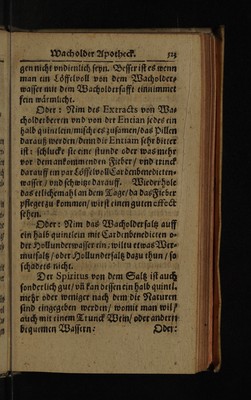 Wacholder Apotheck. 513
gen nicht vndienlich seyn. Besser ist es wenn
man ein Löffelvoll von dem Wacholder-
wasser mit dem Wacholdersafft einnimmet
fein wärmlicht.
Oder: Nim des Extracts von Wa-
cholderberren vnd von der Entian jedes ein
halb quintlein / misch es zusamen / das Pillen
darauß werden / denn die Entiam sehr bitter
ist: schlucke sie eine stunde oder was mehr
vor dem ankommenden Fieber / vnd trinck
darauff ein par Löffelvoll Cardenbenedicten-
wasser / vnd schwitze darauff. Wiederhole
das etlichemahl an dem Tage / da das Fieber
pfleget zu kommen / wirst einen guten effect
sehen.
Oder: Nim das Wacholdersaltz auff
ein halb quintlein mit Cardenbenedicten o-
der Hollunderwasser ein / wiltu etwas Wer-
mutsaltz / oder Hollundersaltz dazu thun / so
schadets nicht.
Der Spiritus von dem Saltz ist auch
sonderlich gut / vñ kan dessen ein halb quintl.
mehr oder weniger nach dem die Naturen
sind eingegeben werden / womit man wil /
auch mit einem Trunck Wein / oder andern
biquemen Wassern: Oder: